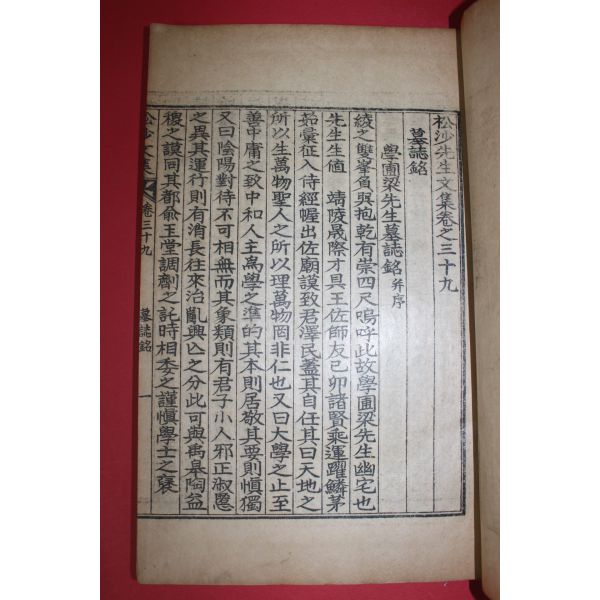 松沙先生文集卷之三十九
墓誌銘
學圃梁先生墓誌銘 幷序
綾之雙峯負與抱乾有崇四尺嗚呼此故學圃梁先生幽宅也
先生生值 靖陵晟際才具王佐師友己卯諸賢乘運躍鱗茅
茹彙征入侍經幄出佐廟謨致君澤民蓋其自任其曰天地之
所以生萬物聖人之所以理萬物罔非仁也又曰大學之止至
善中庸之致中和人主爲學之準的其本則居敬其要則愼獨
又曰陰陽對待不可相無而其象類則有君子小人邪正淑慝
之異其運行則有消長往來治亂興亡之分此可與禹皐陶益
稷之謨同其都兪玉堂調劑之託時相委之謹愼學士之褒
松沙文集 卷三十九 墓誌銘 一